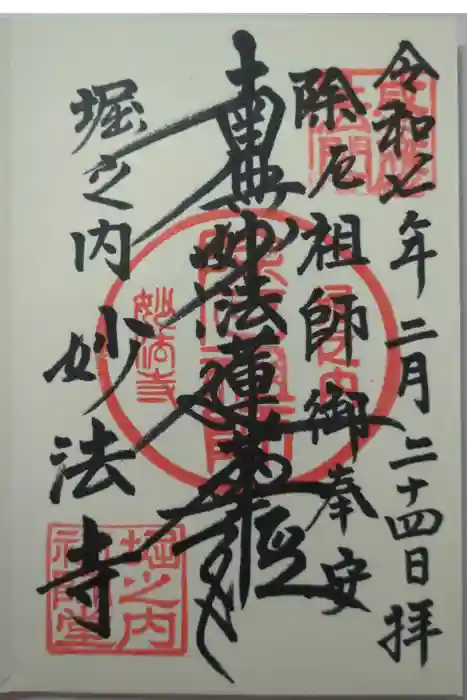 令和七年二月二十四日拝
除厄祖師御奉安
南無妙法蓮華経
堀之内妙法寺
妙法寺
堀之内
祖師堂